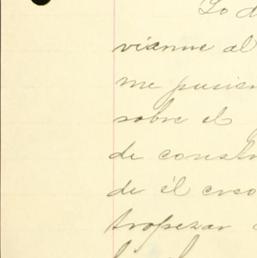 Lo d
vianme al
me pusian
sobre el
de constr
de él creo
tropezar